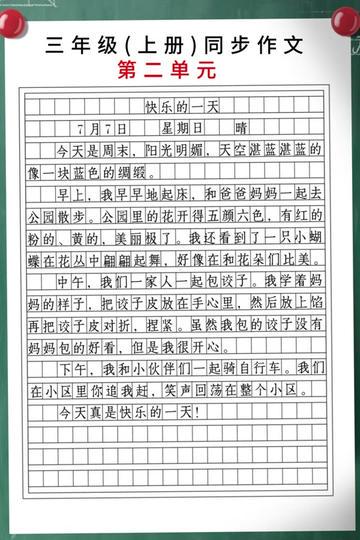 三年级(上册)同步作文
第二单元
快乐的一天
7月7日 星期日 晴
今天是周末，阳光明媚，天空湛蓝湛蓝的
像一块蓝色的绸缎。
早上，我早早地起床，和爸爸妈妈一起去
公园散步。公园里的花开得五颜六色，有红的
粉的、黄的，美丽极了。我还看到了一只小蝴
蝶在花丛中翩翩起舞，好像在和花朵们比美。
中午，我们一家人一起包饺子。我学着妈
妈的样子，把饺子皮放在手心里，然后放上馅
再把饺子皮对折，捏紧。虽然我包的饺子没有
妈妈包的好看，但是我很开心。
下午，我和小伙伴们一起骑自行车。我们
在小区里你追我赶，笑声回荡在整个小区。
今天真是快乐的一天!